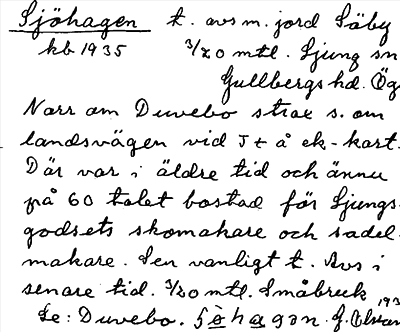 Sjöhagen t. avs m. jord Säby
kb 1935 3/20 mtl. Ljung sn
Gullbergs hd. Ög
Norr om Duvebo strax s. om
landsvägen vid Jt å ek-kart.
Där var i äldre tid och ännu
på 60 talet bostad för Ljungs-
godsets skomakare och sadel-
makare. Sen vanligt t. Avs i
senare tid. 3/20 mtl. Småbruk
Se: Duvebo.